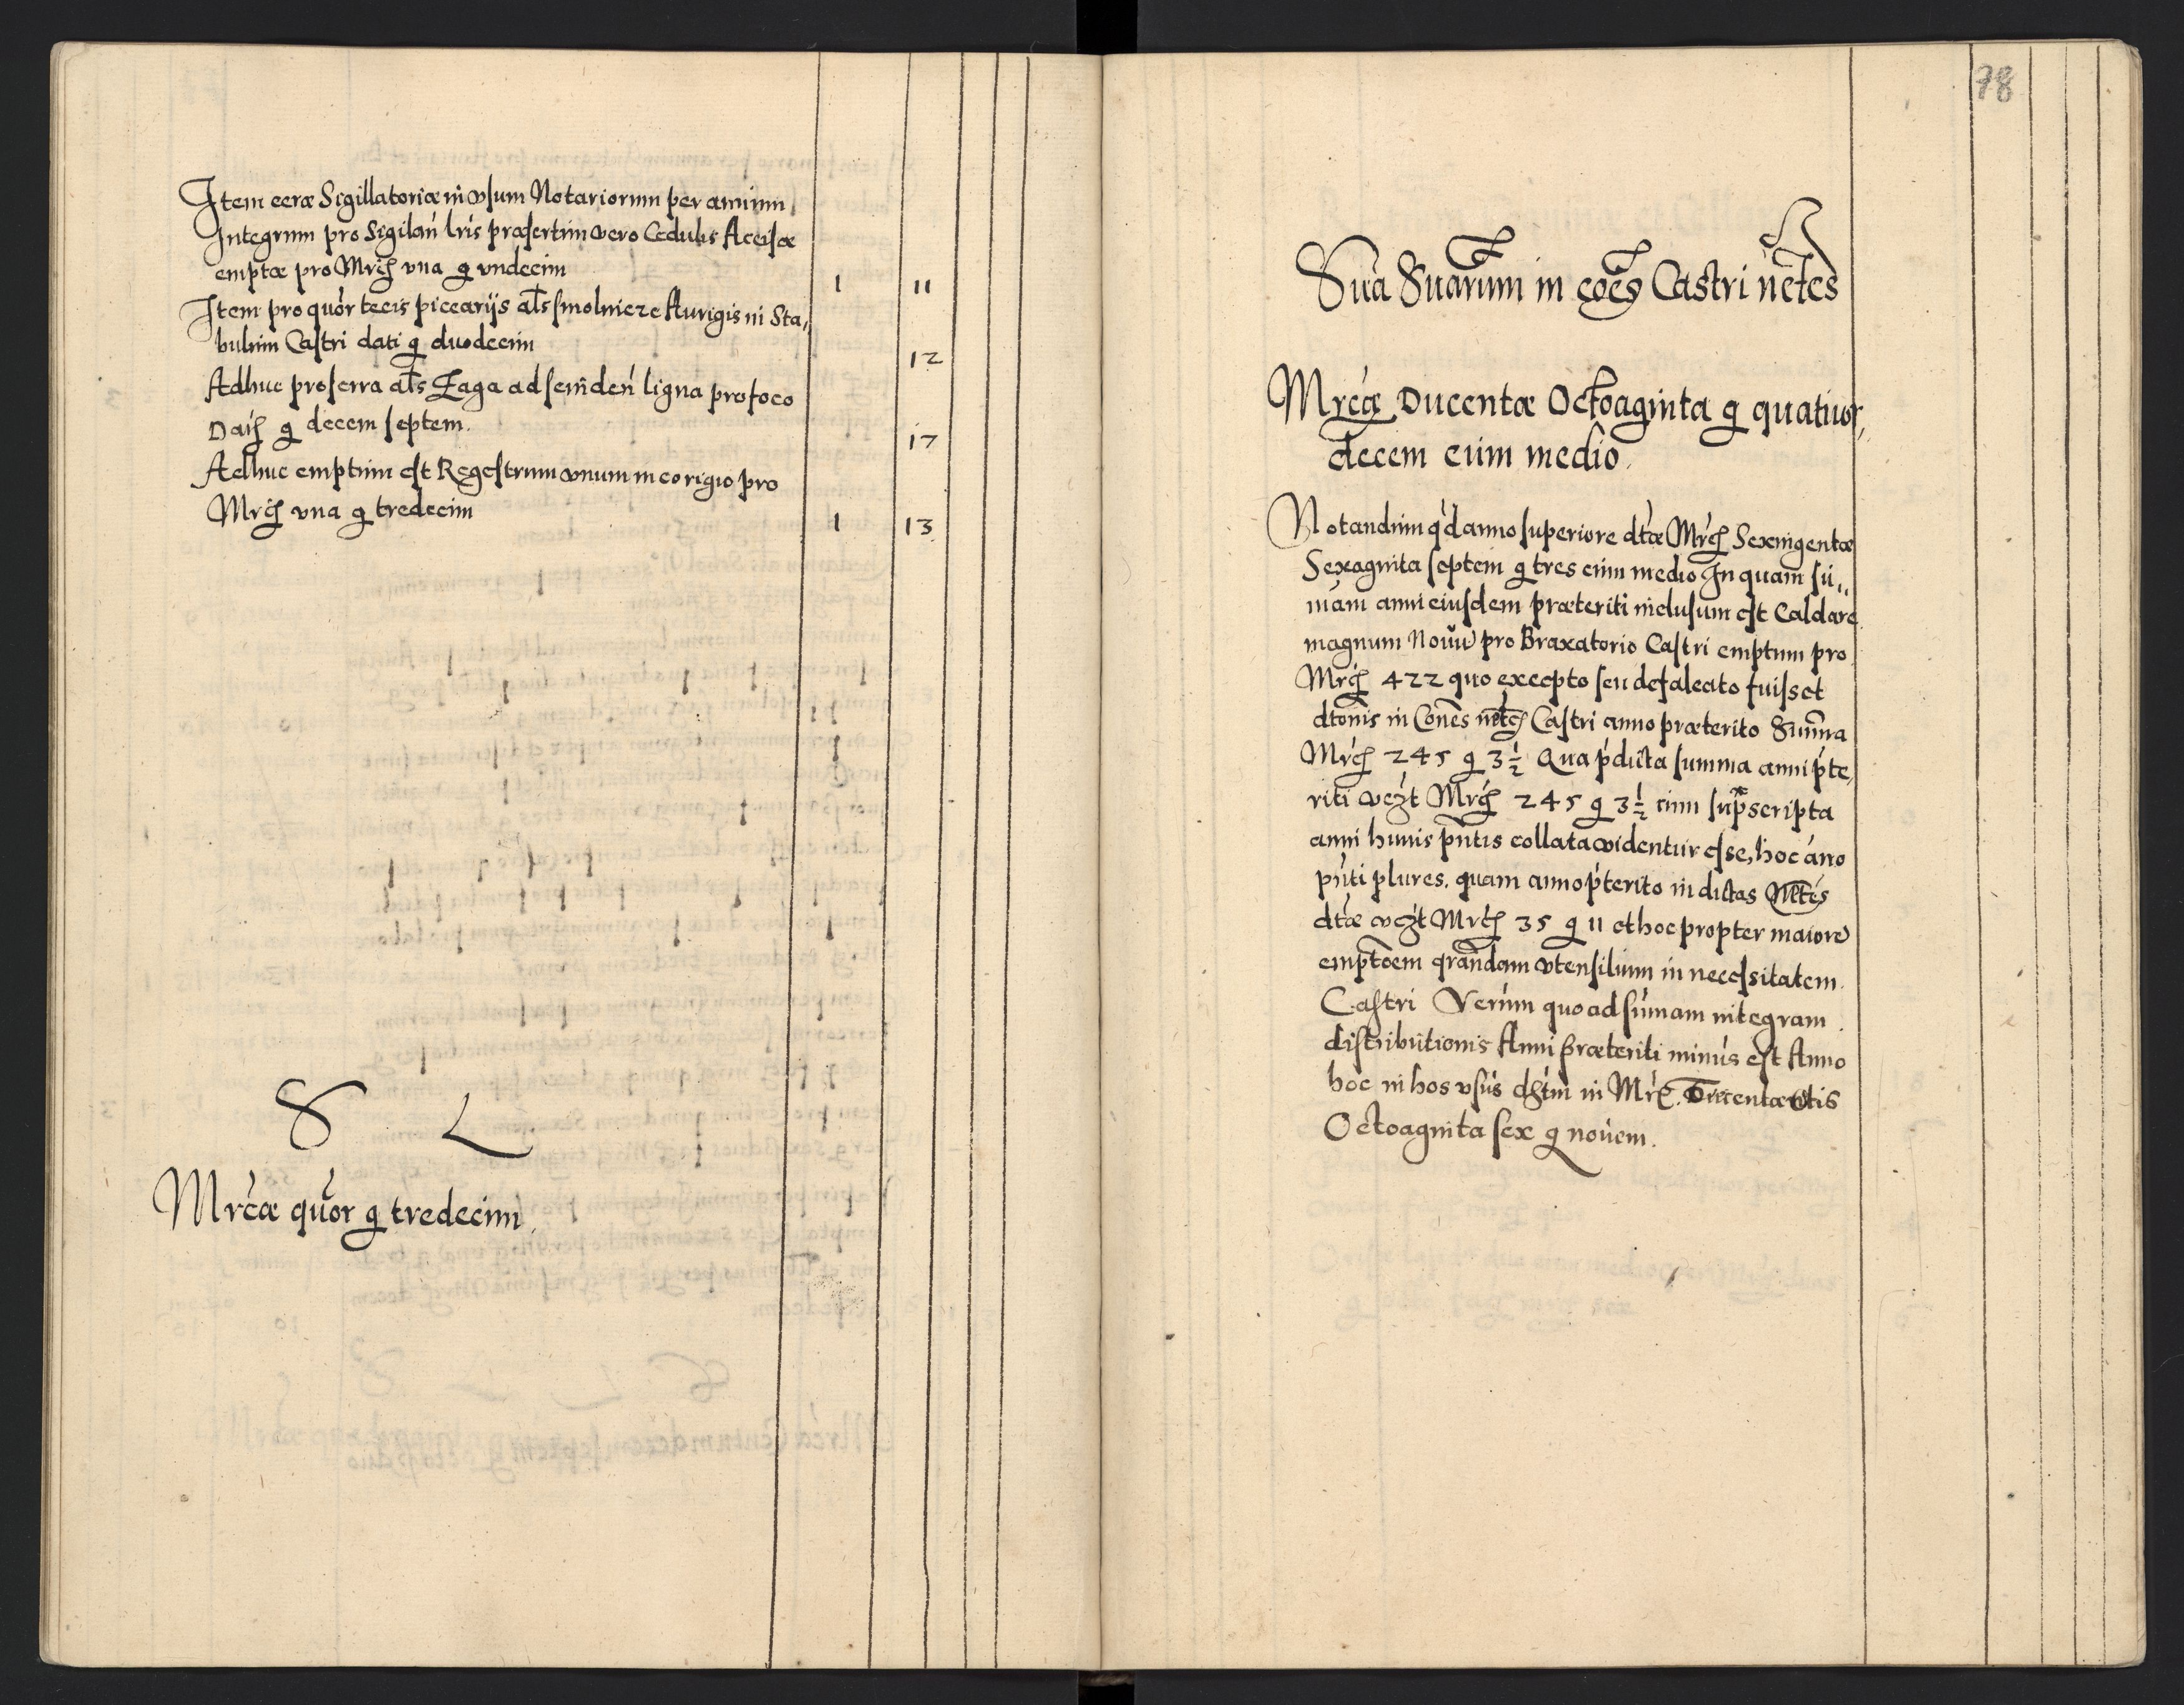 Item ceræ Sigillatoriæ in vsum Notariorum per annum
Integrum pro Sigilań lr̃is præsertim vero Cedulis Aceisæ
emptæ pro Mrc̃ vna g̃ vndecim
1 11
Item pro quõr tecis picearijs al̃s smolnicze Aurigis in Sta,
bulum Castri dati g̃ duodecim
12
Adhuc pro serra al̃s Zaga ad scindeń ligna pro foco
g̃ decem septem.
17
Adhuc emptum est Regestrum vnum in corigio pro
Mrc̃ vna g̃ tredecim
1 13
S L
Mrcæ quõr g̃ tredecim.
78
Sũa Sũarum in cões Castri ñctes
Mrcæ Ducentæ Octoaginta g̃ quatuor,
decem cum medio.
Notandum qd́ anno superiore dt̃æ Mrc̃ Sexingentæ
Sexaginta septem g̃ tres cum medio In quam sũ,,
mam anni eiusdem præteriti inclusum est Caldare
magnum Nouũ pro Braxatorio Castri emptum pro
Mrc̃ 422 quo excepto seu defalcato fuisset
dt̃onis in Cões ñctes Castri anno præterito Sum̃a
Mrc̃ 245 g̃ 3½ Qua p̃dicta summa anni p̃te,
riti vczt Mrc̃ 245 g̃ 3½ cum sup̃scripta
anni huius pñtis collata videntur esse, hoc ãno
pñti plures, quam anno p̃terito in dictas Nctes
dt̃æ vczt Mrc̃ 35 g̃ 11 et hoc propter maiorẽ
empt̃oem qrãndam vtensilium in necessitatem
Castri Verum quoad sum̃am integram
distributionis Anni Præteriti minus est Anno
hoc in hos vsus in Mrc̃.
Octoaginta sex g̃ nouem.